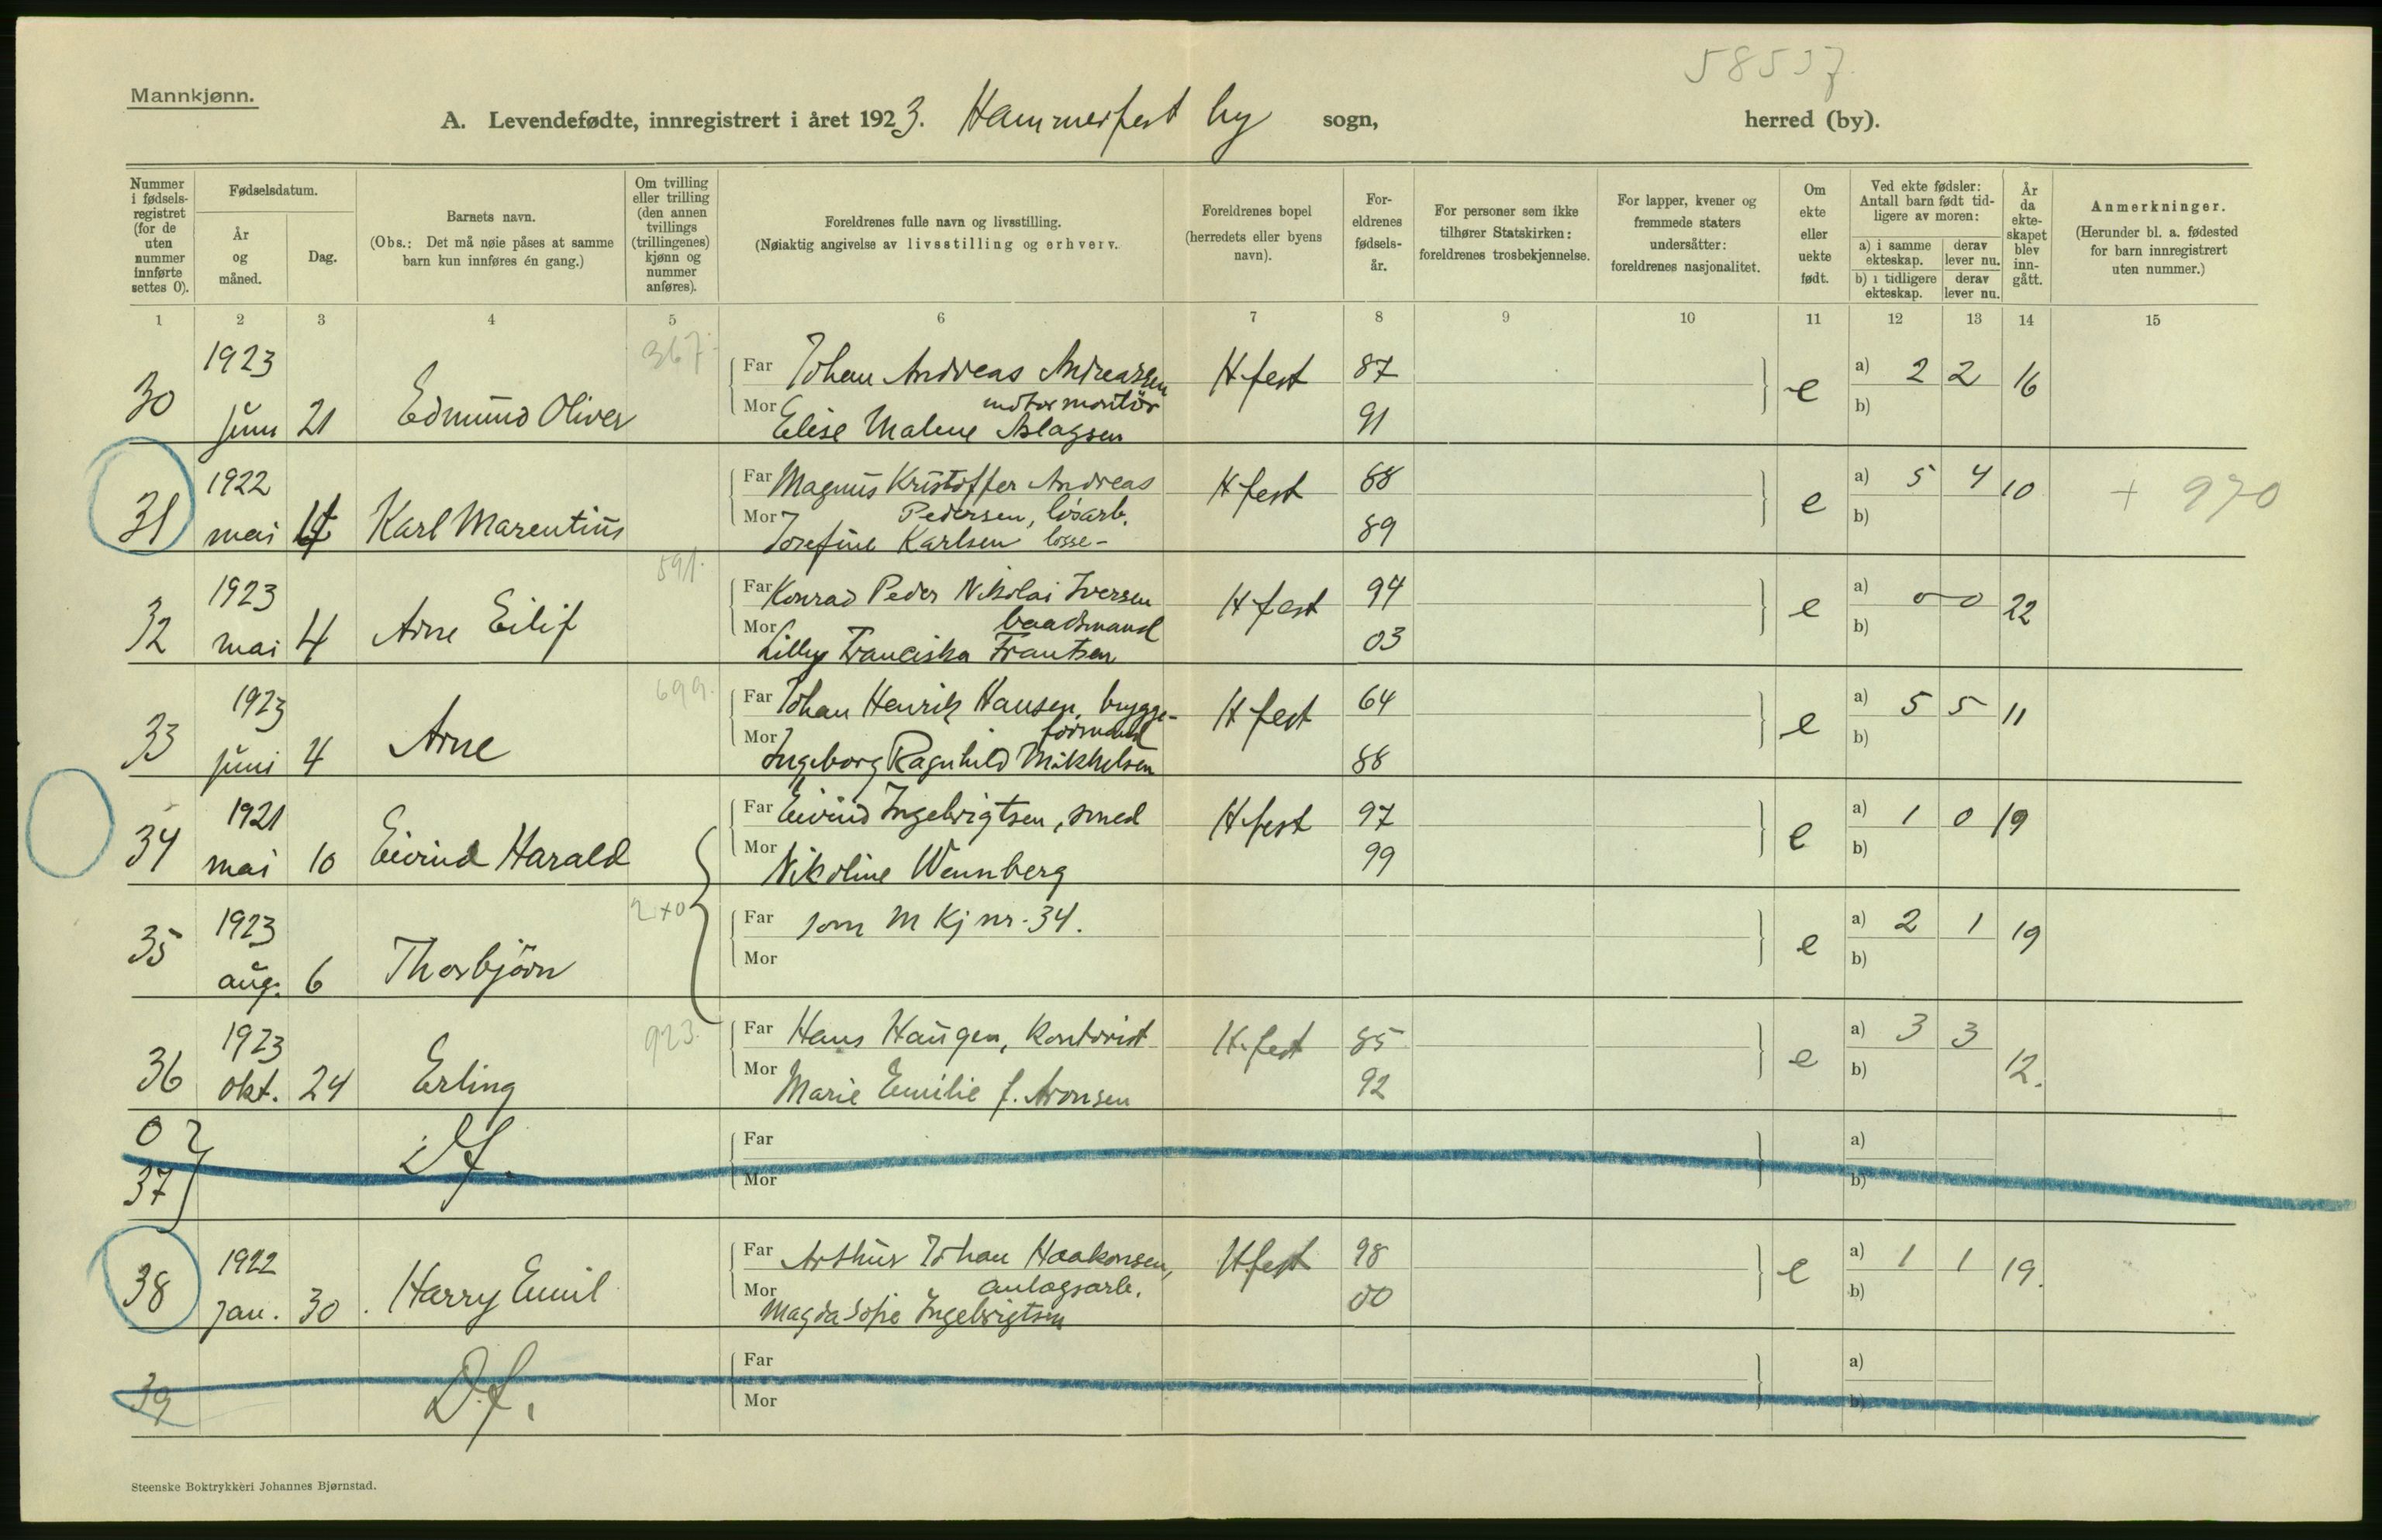 58537.
Mannkjønn.
A. Levendefødte, innregistrert i året 1923. Hammerfest by sogn, herred (by).
Nummer i fødselsregistret (for de uten nummer innførte settes 0).
Fødselsdatum.
År og måned.
Dag.
Barnets navn.
(Obs.: Det må nøie påses at samme barn kun innføres én gang.)
Om tvilling eller trilling (den annen tvillings (trillingenes) kjønn og nummer anføres).
Foreldrenes fulle navn og livsstilling.
(Nøiaktig angivelse av livsstilling og erhverv.
Foreldrenes bopel (herredets eller byens navn).
Foreldrenes fødselsår.
For personer som ikke tilhører Statskirken: foreldrenes trosbekjennelse.
For lapper, kvener og fremmede staters undersåtter: foreldrenes nasjonalitet.
Om ekte eller uekte født.
Ved ekte fødsler: Antall barn født tidligere av moren:
a) i samme ekteskap. derav lever nu.
b) i tidligere ekteskap. derav lever nu.
År da ekteskapet blev inngått.
Anmerkninger.
(Herunder bl. a. fødested for barn innregistrert uten nummer.)
1 2 3 4 5 6 7 8 9 10 11 12 13 14 15
30 1923 juni 21 Edmund Oliver 367.
Far Johan Andreas Andreassen motormontör H.fest 87 e a) 2 2 16
Mor Elise Malene Aslagsen 91 b)
31 1922 mai 14 Karl Marentius
Far Magnus Kristoffer Andreas Pedersen, lösarb. H.fest 88 e a) 5 4 10 + 970
Mor Josefine Karlsen losse- 89 b)
32 1923 mai 4 Arne Eilif 591.
Far Konrad Peder Nikolai Iversen baadsmand H.fest 94 e a) 0 0 22
Mor Lilly Franciska Frantsen 03 b)
33 1923 juni 4 Arne 699.
Far Johan Henrik Hansen, bryggeformand H.fest 64 e a) 5 5 11
Mor Ingeborg Ragnhild Mikkelsen 88 b)
34 1921 mai 10 Eivind Harald
Far Eivind Ingebrigtsen, smed H.fest 97 e a) 1 0 19
Mor Nikoline Wennberg 99 b)
35 1923 aug. 6 Thorbjörn
Far som M Kj nr. 34. e a) 2 1 19
Mor b)
36 1923 okt. 24 Erling 923.
Far Hans Haugen, kontorist H.fest 85 e a) 3 3 12.
Mor Marie Emilie f. Aronsen 92 b)
0
37 Df.
Far a)
Mor b)
38 1922 jan. 30. Harry Emil
Far Arthur Johan Haakonsen, anlægsarb. H.fest 98 e a) 1 1 19.
Mor Magda Sofie Ingebrigtsen 00 b)
39 D.f.
Far a)
Mor b)
Steenske Boktrykkeri Johannes Bjørnstad.